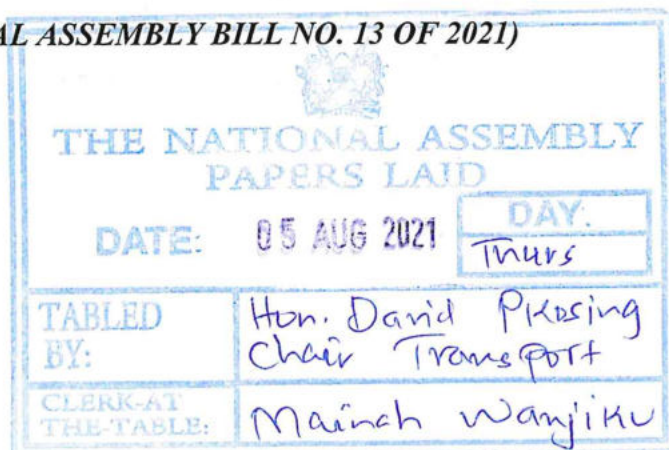 AL ASSEMBLY BILL NO. 13 OF 2021)
THE NATIONAL ASSEMBLY
PAPERS LAID
DATE: 05 AUG 2021
DAY:
Thurs
TABLED BY:
Hon. David Pkosing
Chair Transport
CLERK-AT THE-TABLE:
Mainah Wanjiku